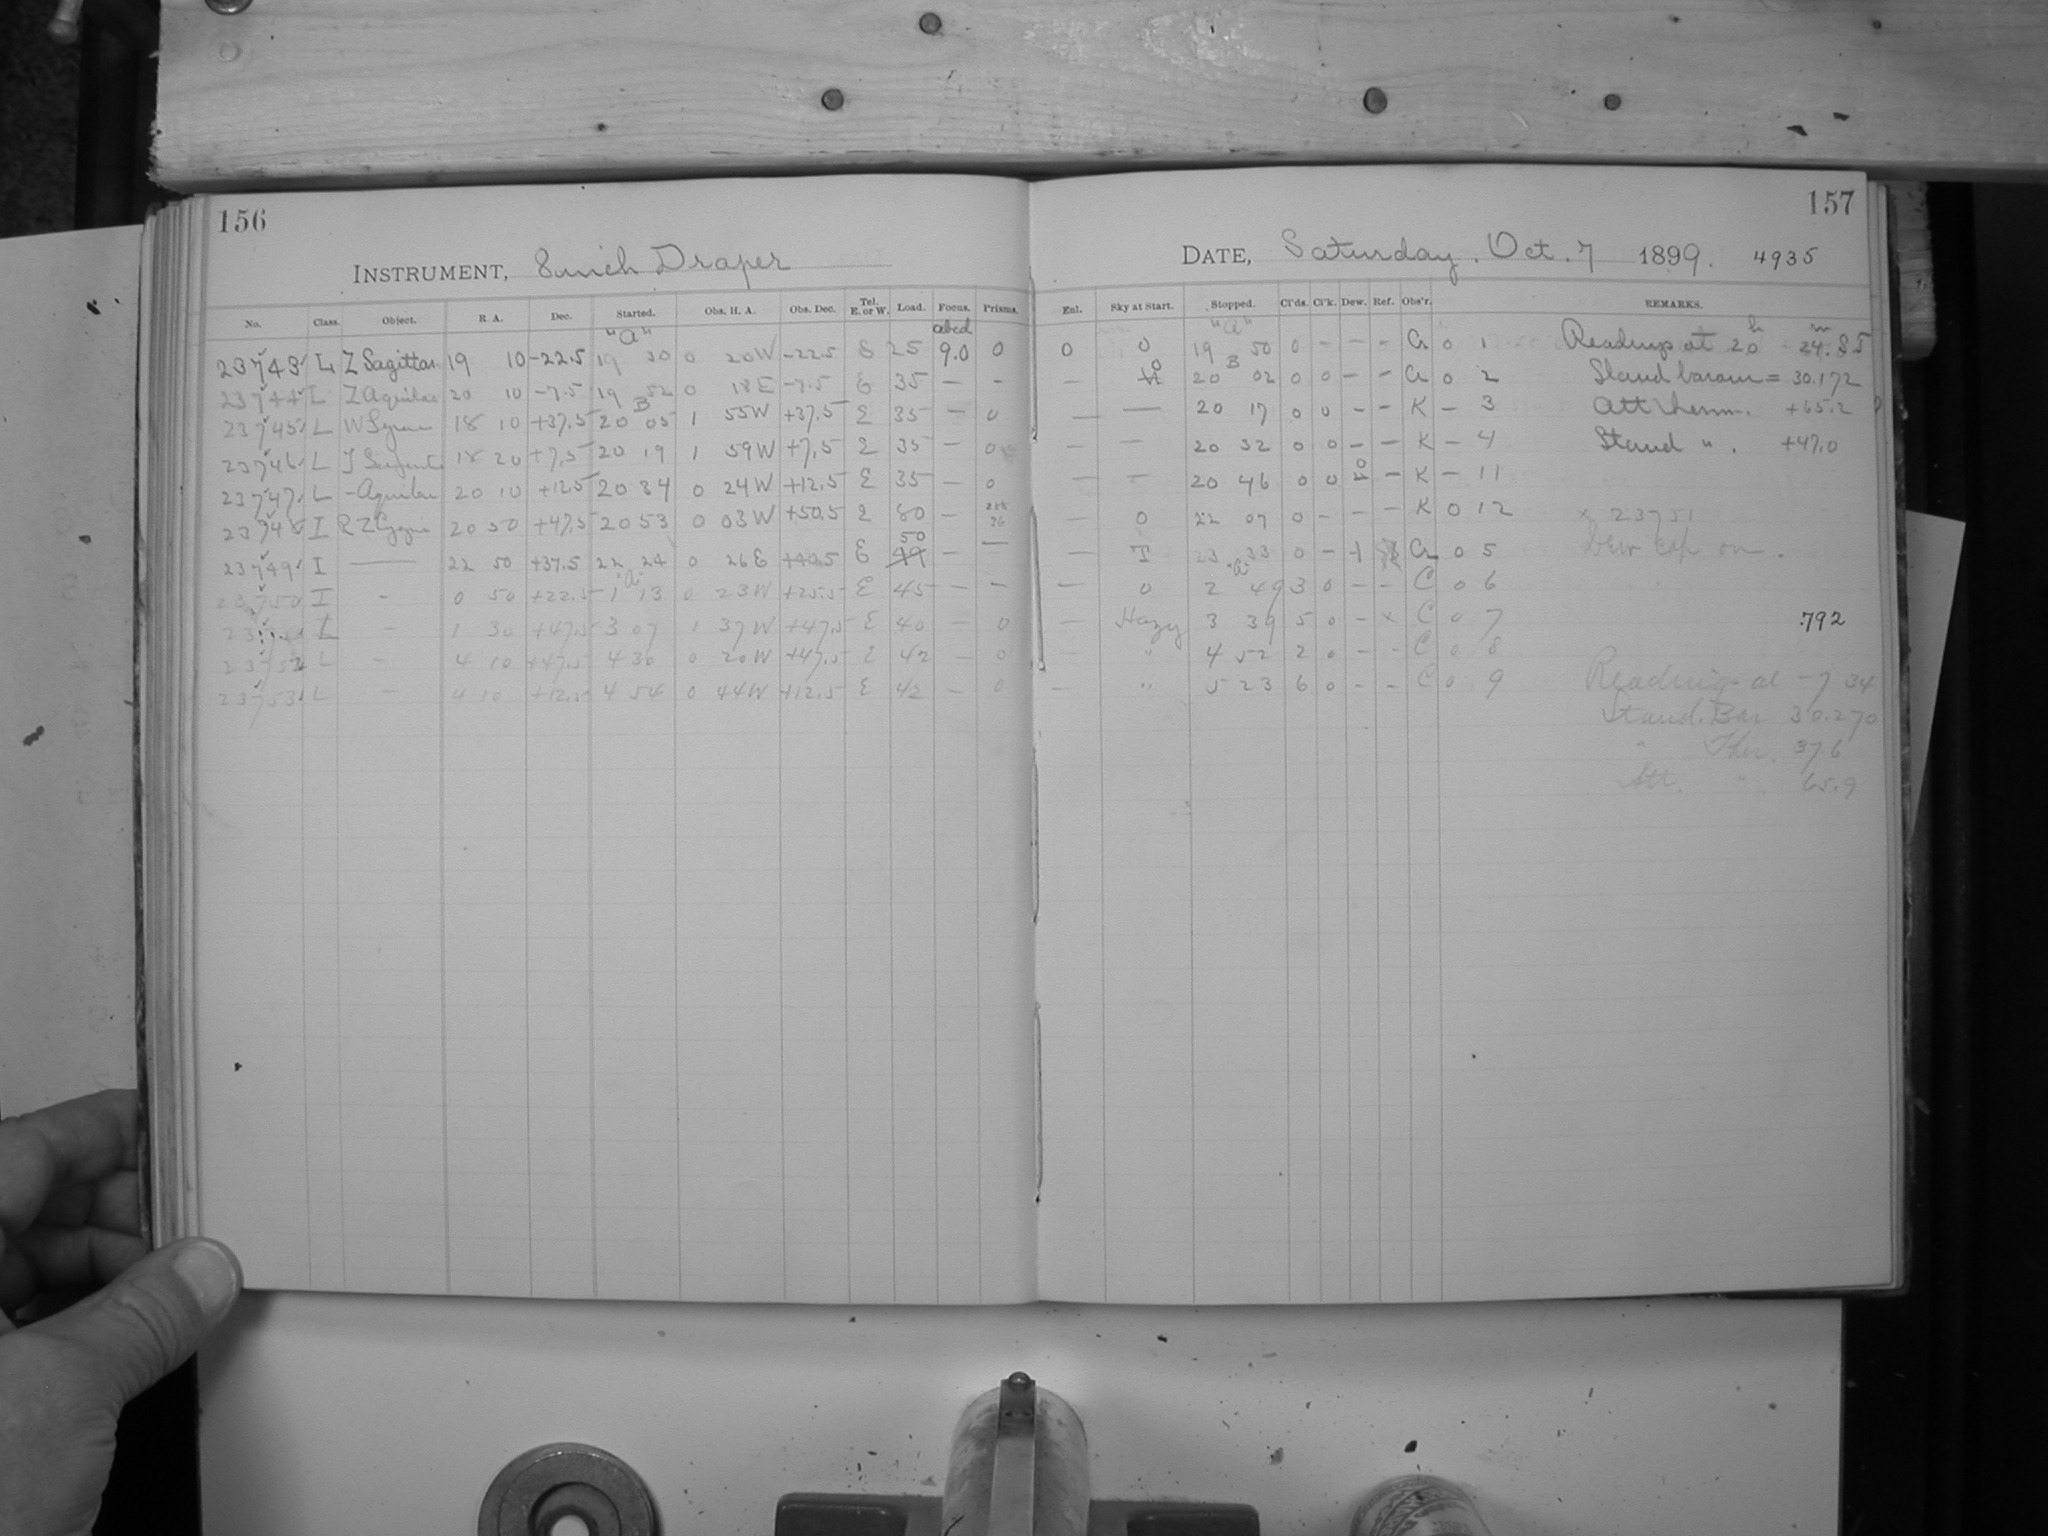 156
INSTRUMENT, 8 inch Draper
No. Class. Object. R. A. Dec. Started. Obs. H. A. Obs. Dec. Tel. E. or W. Load. Focus. Prisms.
"a" abcd
23743 L Z Sagittar 19 10 -22.5 19 30 0 20W -22.5 E 25 9.0 0
23744 L Z Aquilae 20 10 -7.5 19 52 0 18E -7.5 E 35 — -
B
23745 L W Lyrae 18 10 +37.5 20 05 1 55W +37.5 E 35 — 0
23746 L 18 20 +7.5 20 19 1 59W +7.5 E 35 — 0
23747 L - Aquilae 20 10 +12.5 20 34 0 24W +12.5 E 35 — 0
23748 I RZ Cygni 20 50 +47.5 20 53 0 03W +50.5 E 80 —
23749 I — 22 50 +37.5 22 24 0 26E +40.5 E 50 — —
"a"
23750 I - 0 50 +22.5 1 13 0 23W +25.5 E 45 — —
L - 1 30 +47.5 3 07 1 37W +47.5 E 40 — 0
23752 L - 4 10 +47.5 4 30 0 20W +47.5 E 42 — 0
23753 L - 4 10 +12.5 4 54 0 44W +12.5 E 42 — 0
157
DATE, Saturday. Oct. 7 1899. 4935
Enl. Sky at Start. Stopped. Cl'ds. Cl'k. Dew. Ref. Obs'r. REMARKS.
"a"
0 0 19 50 0 - - - 0 1 Readings at 20 h 24.85 m
— 0 20 02 0 0 - - 0 2 Stand barom = 30.172
B
— — 20 17 0 0 - - K - 3 Att therm. +65.2
— — 20 32 0 0 - - K - 4 Stand " . +47.0
— - 20 46 0 0 0 - K - 11
— 0 22 07 0 - - - K 0 12 x 23751
— I 23 33 0 - 0 5 Dew cap on.
"a"
— 0 2 49 3 0 - - C 0 6
— Hazy 3 39 5 0 - x C 0 7 .792
" 4 52 2 0 - - C 0 8
— " 5 23 6 0 - - C 0 9 Reading at -7 34
Stand. Bar 30.270
" Ther. 37.6
Att. " 65.9